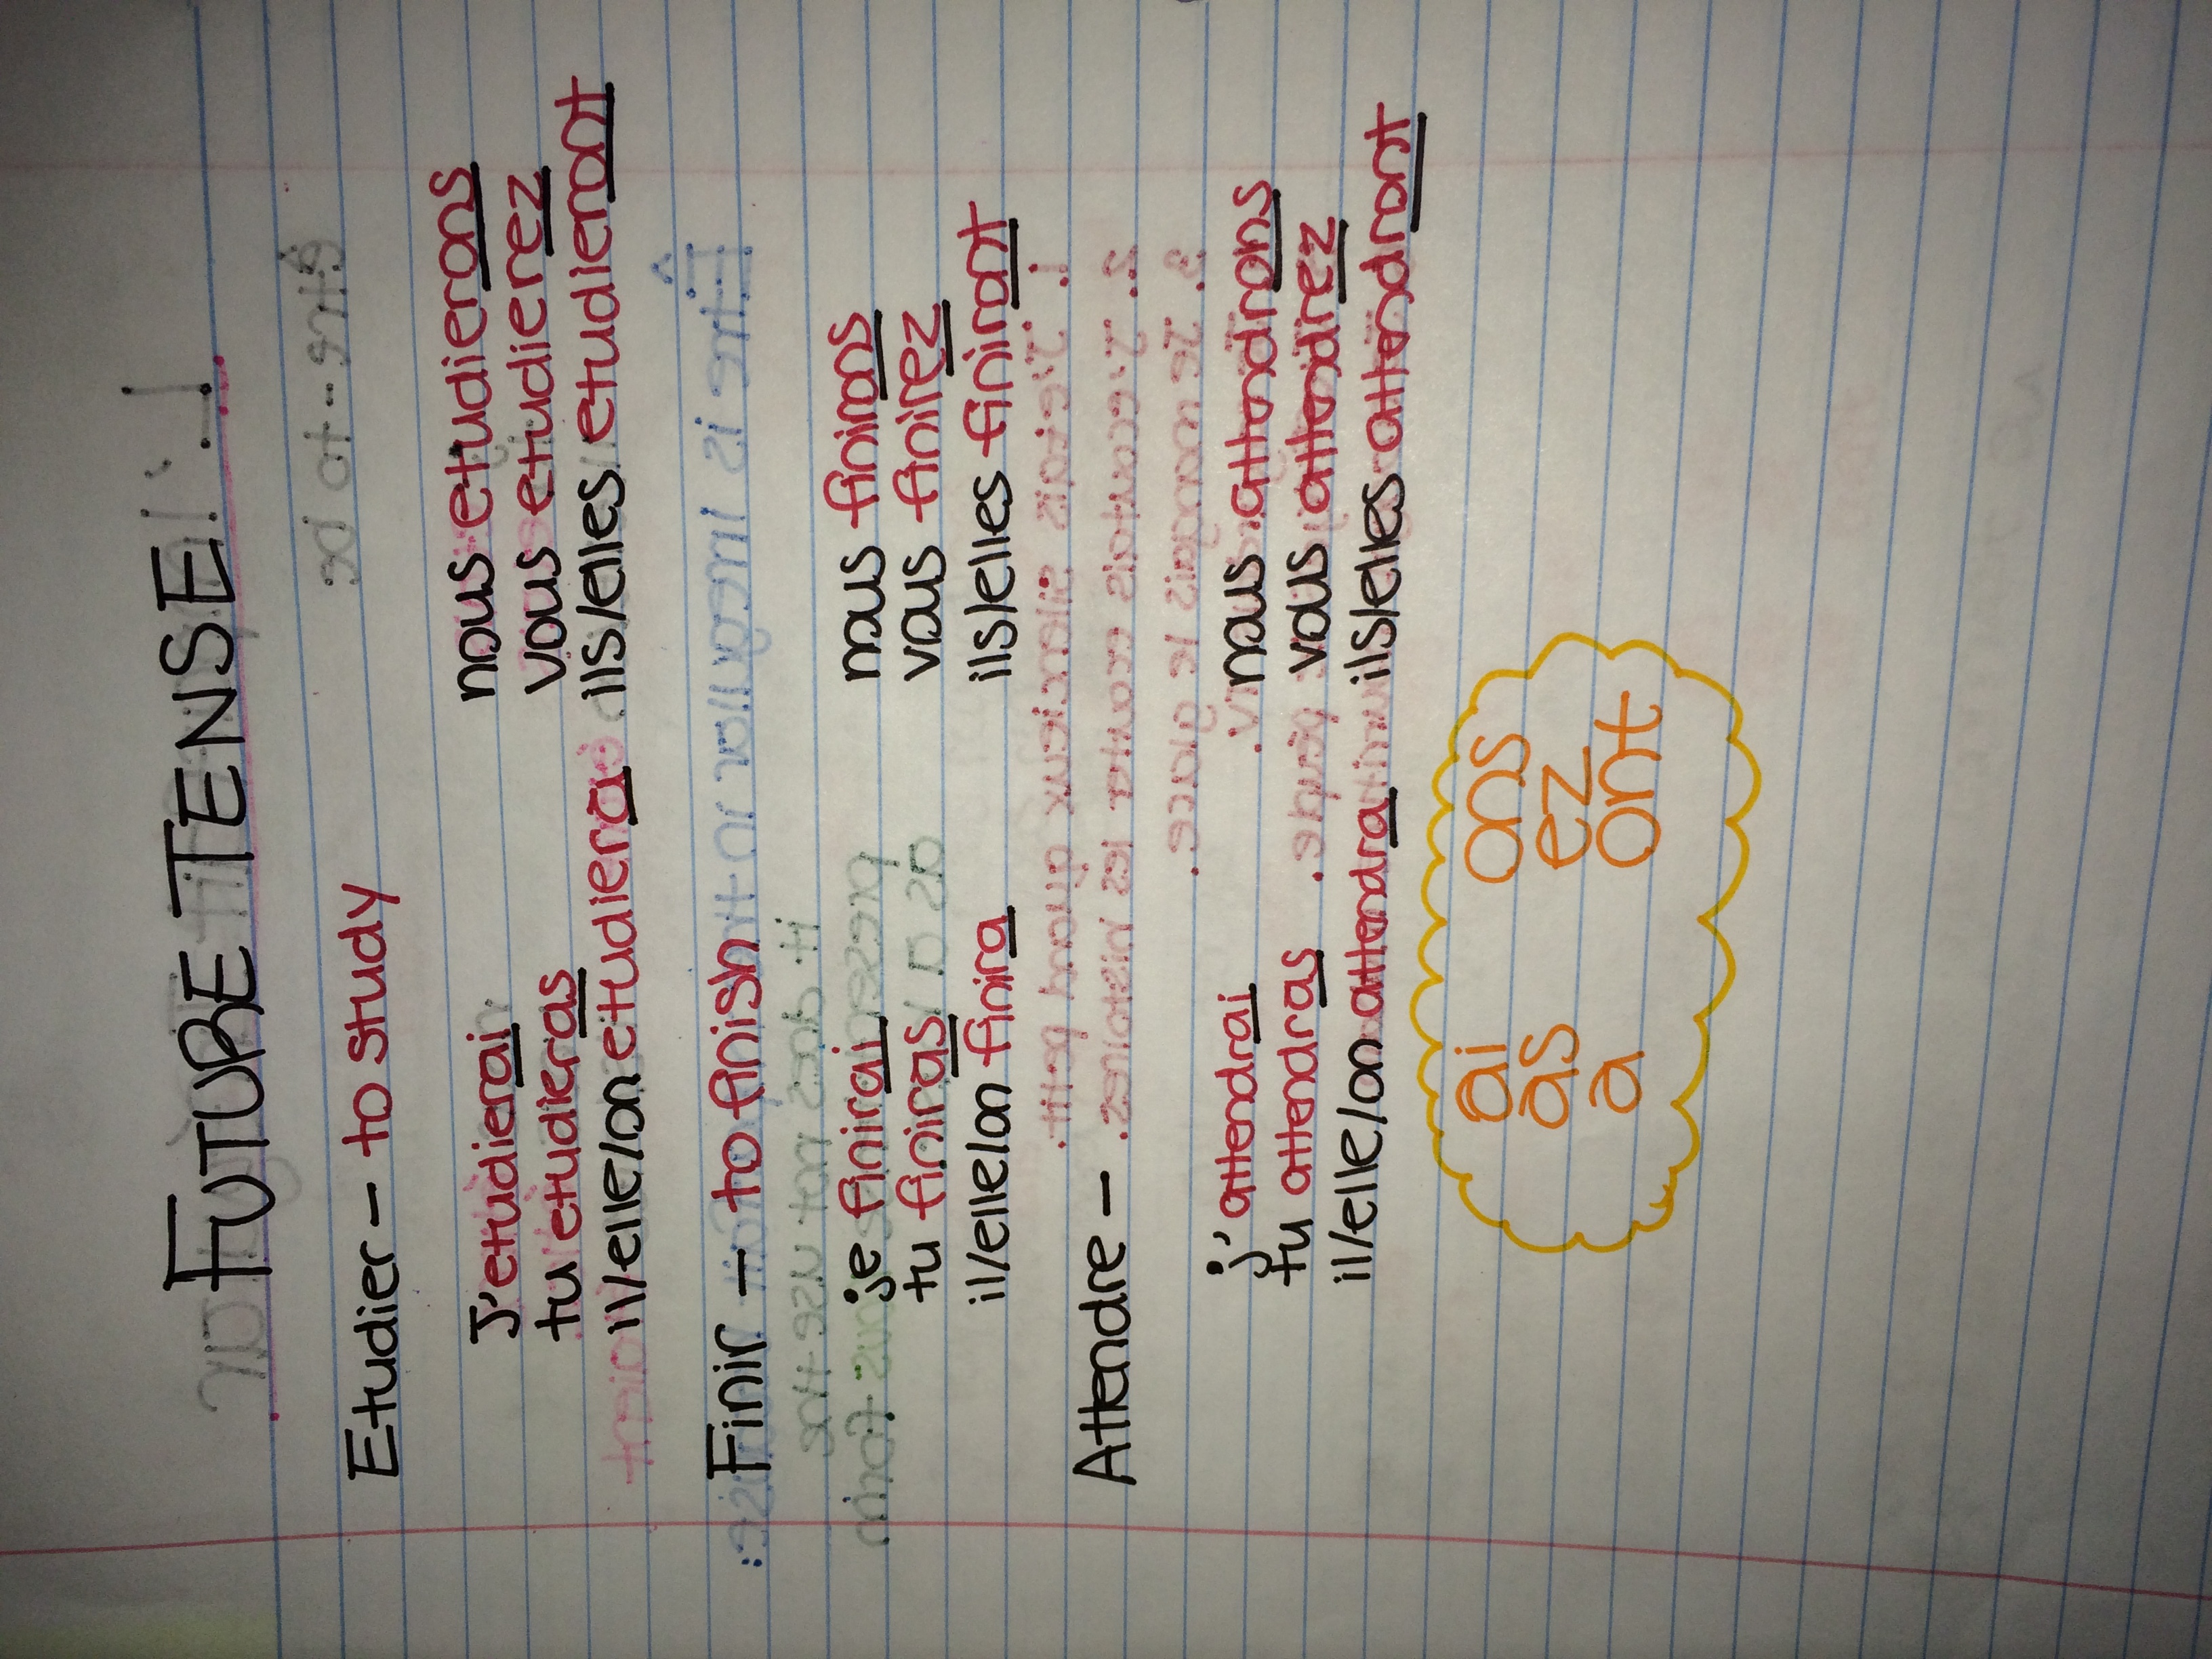 FUTURE TENSE!
Etudier - to study
J'etudierai
tu etudieras
il/elle/on etudiera
nous etudierons
vous etudierez
ils/elles etudieront
Finir - to finish
je finirai
tu finiras
il/elle/on finira
nous finirons
vous finirez
ils/elles finiront
Attendre -
j'attendrai
tu attendras
il/elle/on attendra
nous attendrons
vous attendrez
ils/elles attendront
ai
as
a
ons
ez
ont